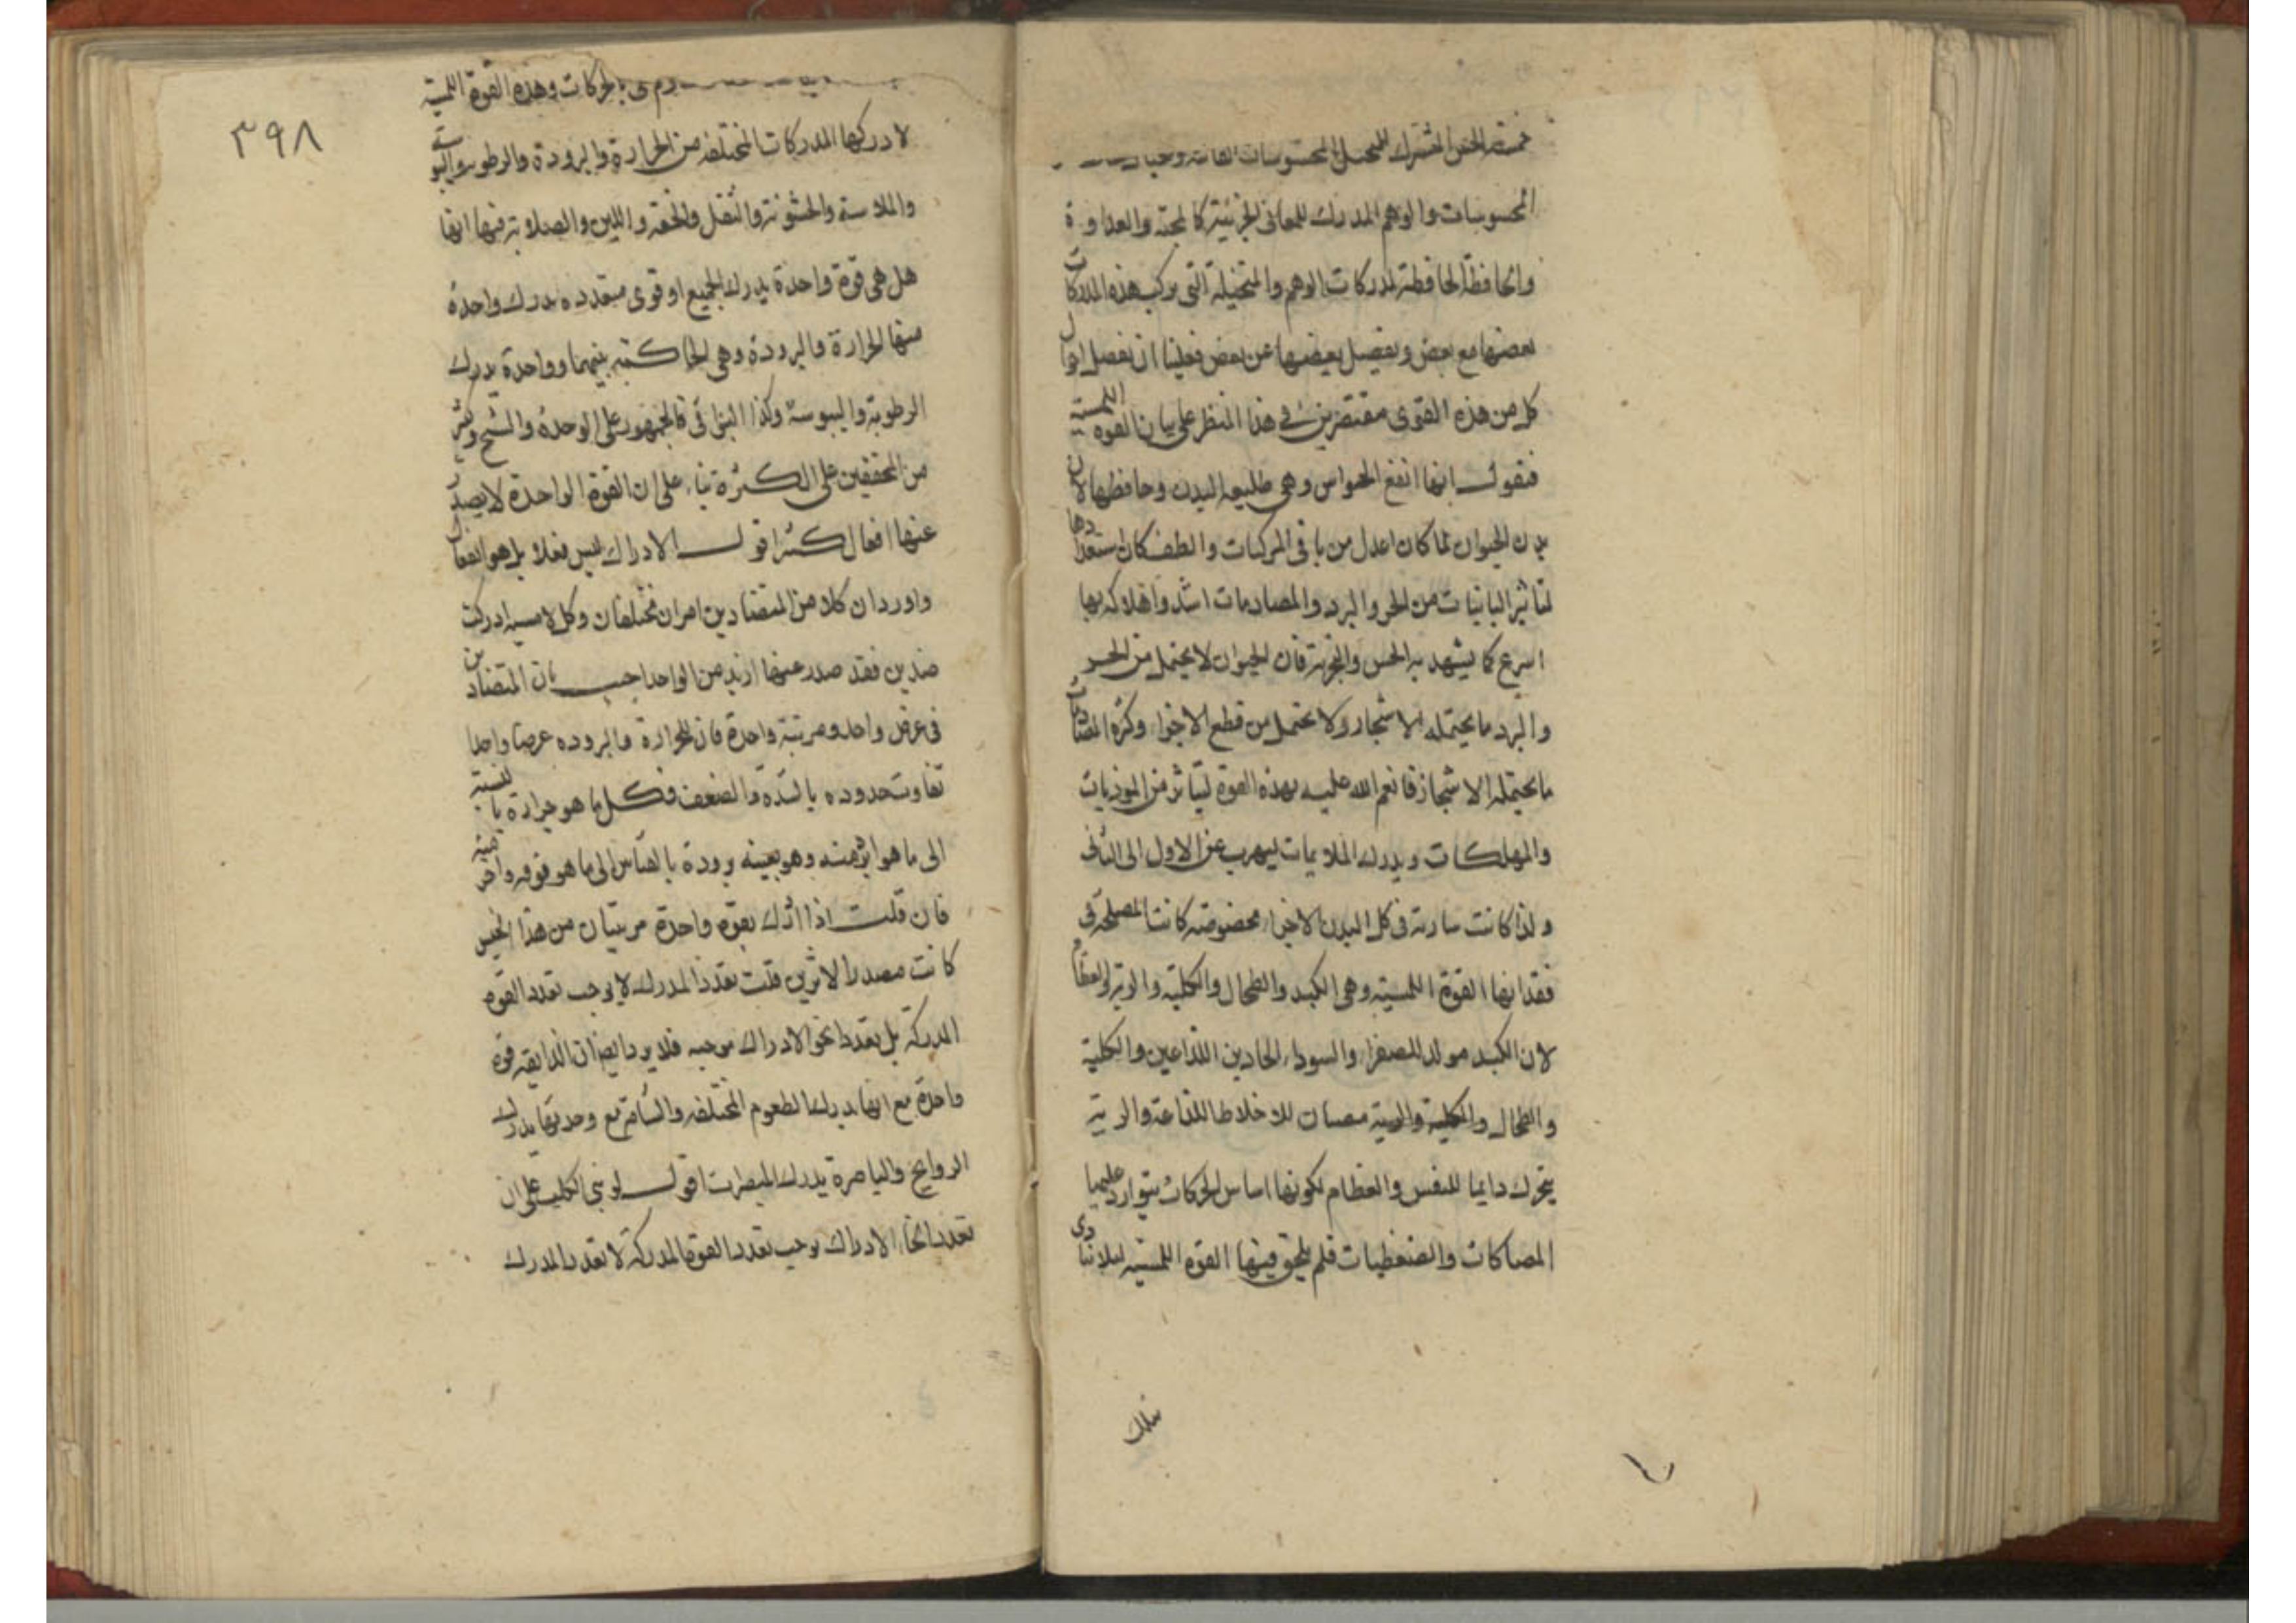 خمسة الحس المشترك المحسوسات
المحسوسات والوهم المدرك للمعانى الجزئية كالمحبة والعداوة
والحافظة الحافظة لمدركات الوهم والمتخيلة التى يركب هذه المدركات
بعضها مع بعض ويفصل بعضها عن بعض فعلينا ان نفصل احوال
كل من هذه القوى مقتصرين فى هذا المنظر على بيان القوه اللمسية
فنقول انها انفع الحواس وهى طليعه البدن وحافظها لان
بدن الحيوان لما كان اعدل من باقى المركبات والطف كان استعدادها
لتاثير من الحر والبرد والمصادمات اشد واهلاكه بها
اسرع كما يشهد به الحس والتجربة فان الحيوان لا يحتمل من الحر
والبرد ما يحتمله الاشجار ولا يحتمل من قطع الاجزاء وكثرة المصادمات
ما يحتمله الاشجار فانعم الله عليه بهذه القوة ليتاثر من الموذيات
والمهلكات ويدرك الملايمات ليهرب عن الاول الى الثانى
ولذا كانت سارية فى كل البدن الا اجزاء مخصوصة كانت المصلحة فى
فقدانها القوة اللمسية وهى الكبد والطحال والكلية والرية والعظام
لان الكبد مولد للصفراء والسوداء الحادين اللذاعين والكلية
والطحال والكلية والرية مصبان للاخلاط اللذاعة والرية
يتحرك دايما للنفس والعظام لكونها اساس الحركات يتوارد عليها
المصاكات والضغطيات فلم يخلق فيها القوه اللمسية ليلا تتاذى
بتلك
٣٩٨
بالحركات وهذه القوة اللمسية
لادركها المدركات المختلفه من الحرارة والبرودة والرطوبة واليبوسة
والملاسة والخشونة والثقل والخفة واللين والصلابة فيها انها
هل هى قوة واحدة يدرك الجميع او قوى متعدده يدرك واحدة
منها الحرارة والبرودة وهى الحاكمة بينهما وواحدة يدرك
الرطوبة واليبوسة وكذا البواقى فالجمهور على الوحدة والشيخ وكثير
من المحققين على الكثرة بناء على ان القوة الواحدة لا يصدر
عنها افعال كثيرا اقول الادراك ليس فعلا بل هو انفعال
واورد ان كلا من المتضادين امران مختلفان وكل لامسه ادركت
ضدين فقد صدر عنها ازيد من الواحد اجيب بان المتضادين
فى عرض واحد ومرتبة واحدة فان للحرارة والبروده عرضا واحدا
تفاوت حدوده بالشدة والضعف فكل ما هو حرارة بالنسبة
الى ما هو ابرد منه وهو بعينه برودة بالقياس الى ما هو فوقه واحر منه
فان قلت اذا ادرك بقوة واحدة مرتبتان من هذا الجنس
كانت مصدرا لاثرين قلت تعدد المدرك لا يوجب تعدد القوة
المدركة بل تعدد انحو الادراك موجبه فلا يرد ايضا ان الذايقه قوة
واحدة مع انها يدرك الطعوم المختلفه والشامة مع وحدتها يدرك
الروايح والباصرة يدرك المبصرات اقول لو بنى الكلام على ان
تعدد انحاء الادراك يوجب تعدد القوة المدركة لا تعدد المدرك